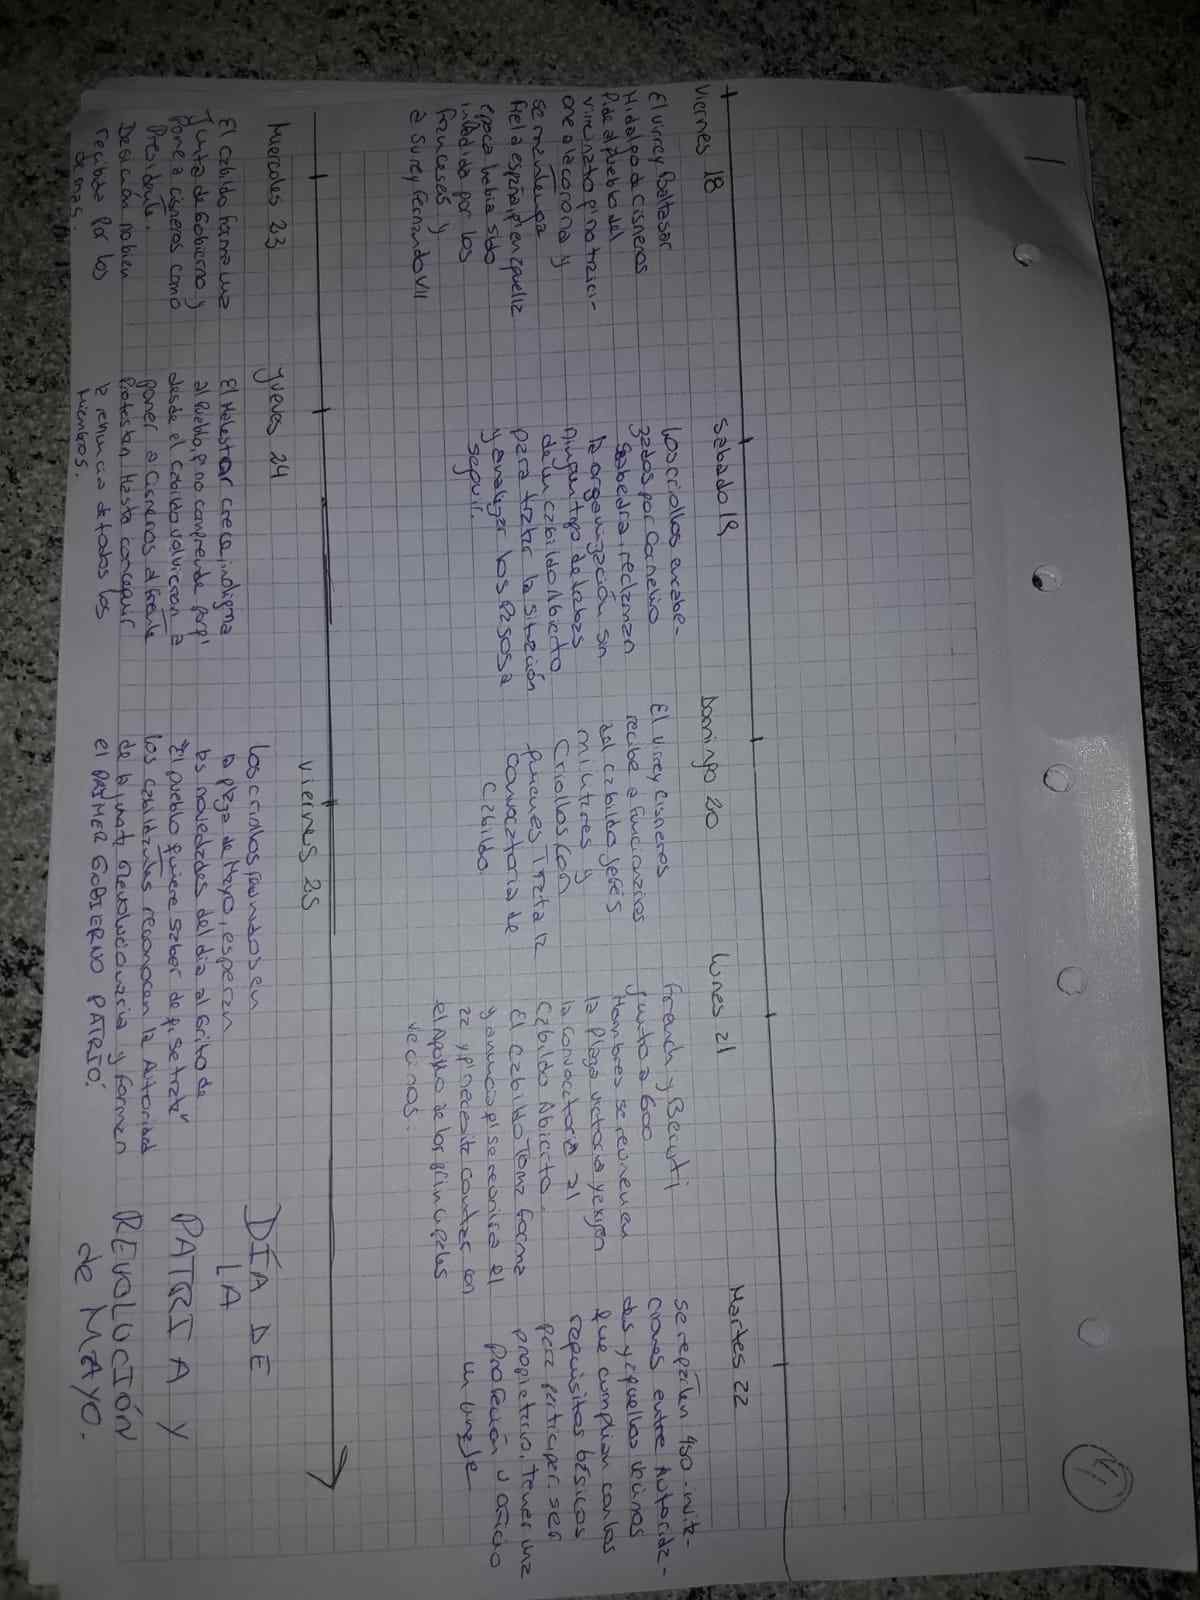 Viernes 18
El virrey Baltasar
Hidalgo de Cisneros
Pide al pueblo del
virreinato q' no traici-
one a la corona y
se mantenga
fiel a españa q' en aquella
época había sido
invadida por los
franceses y
a su rey Fernando VII
Sabado 19
Los criollos encabe-
zados por Cornelio
Saavedra, reclaman
la organización sin
ningun tipo de trabas
de un cabildo Abierto
para tratar la situación
y analizar los pasos a
seguir.
Domingo 20
El virrey Cisneros
recibe a funcionarios
del cabildo jefes
militares y
Criollos con
quienes trata la
convocatoria de
Cabildo
Lunes 21
French y Berutti
junto a 600
Hombres se reunen en
la plaza victoria y exigen
la convocatoria al
Cabildo Abierto.
El Cabildo Toma forma
y anuncia q' se reonira el
22 y q' necesita contar con
el Apollo de los principales
vecinos.
Martes 22
se reparten 450 invita-
ciones entre Autorida-
des y aquellos vecinos
que cumplian con los
requisitos básicos
para participar: ser
propietario, tener una
Profeción u oficio
Miercoles 23
El cabildo forma una
Junta de Gobierno y
Pone a cisneros como
Presidente.
Desición no bien
recibida por los
demas.
Jueves 24
El Malestar crece, indigna
al Pueblo, q' no comprende porq'
desde el cabildo volvieron a
poner a Cisneros al frente
Protestan Hasta conseguir
la renuncia de todos los
Miembros.
Viernes 25
Los criollos reunidos en
la plaza de Mayo, esperan
las novedades del dia al Grito de
"El pueblo quiere saber de q' se trata"
los cabildantes reconocen la Autoridad
de la junta Revolucionaria y forman
el PRIMER GOBIERNO PATRIO.
DÍA DE
LA
PATRIA Y
REVOLUCIÓN
de MAYO.